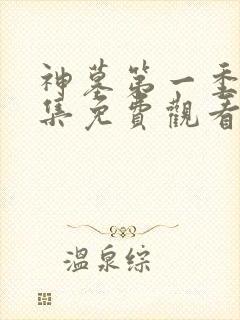 神墓第一季
集免費觀看
溫泉綜